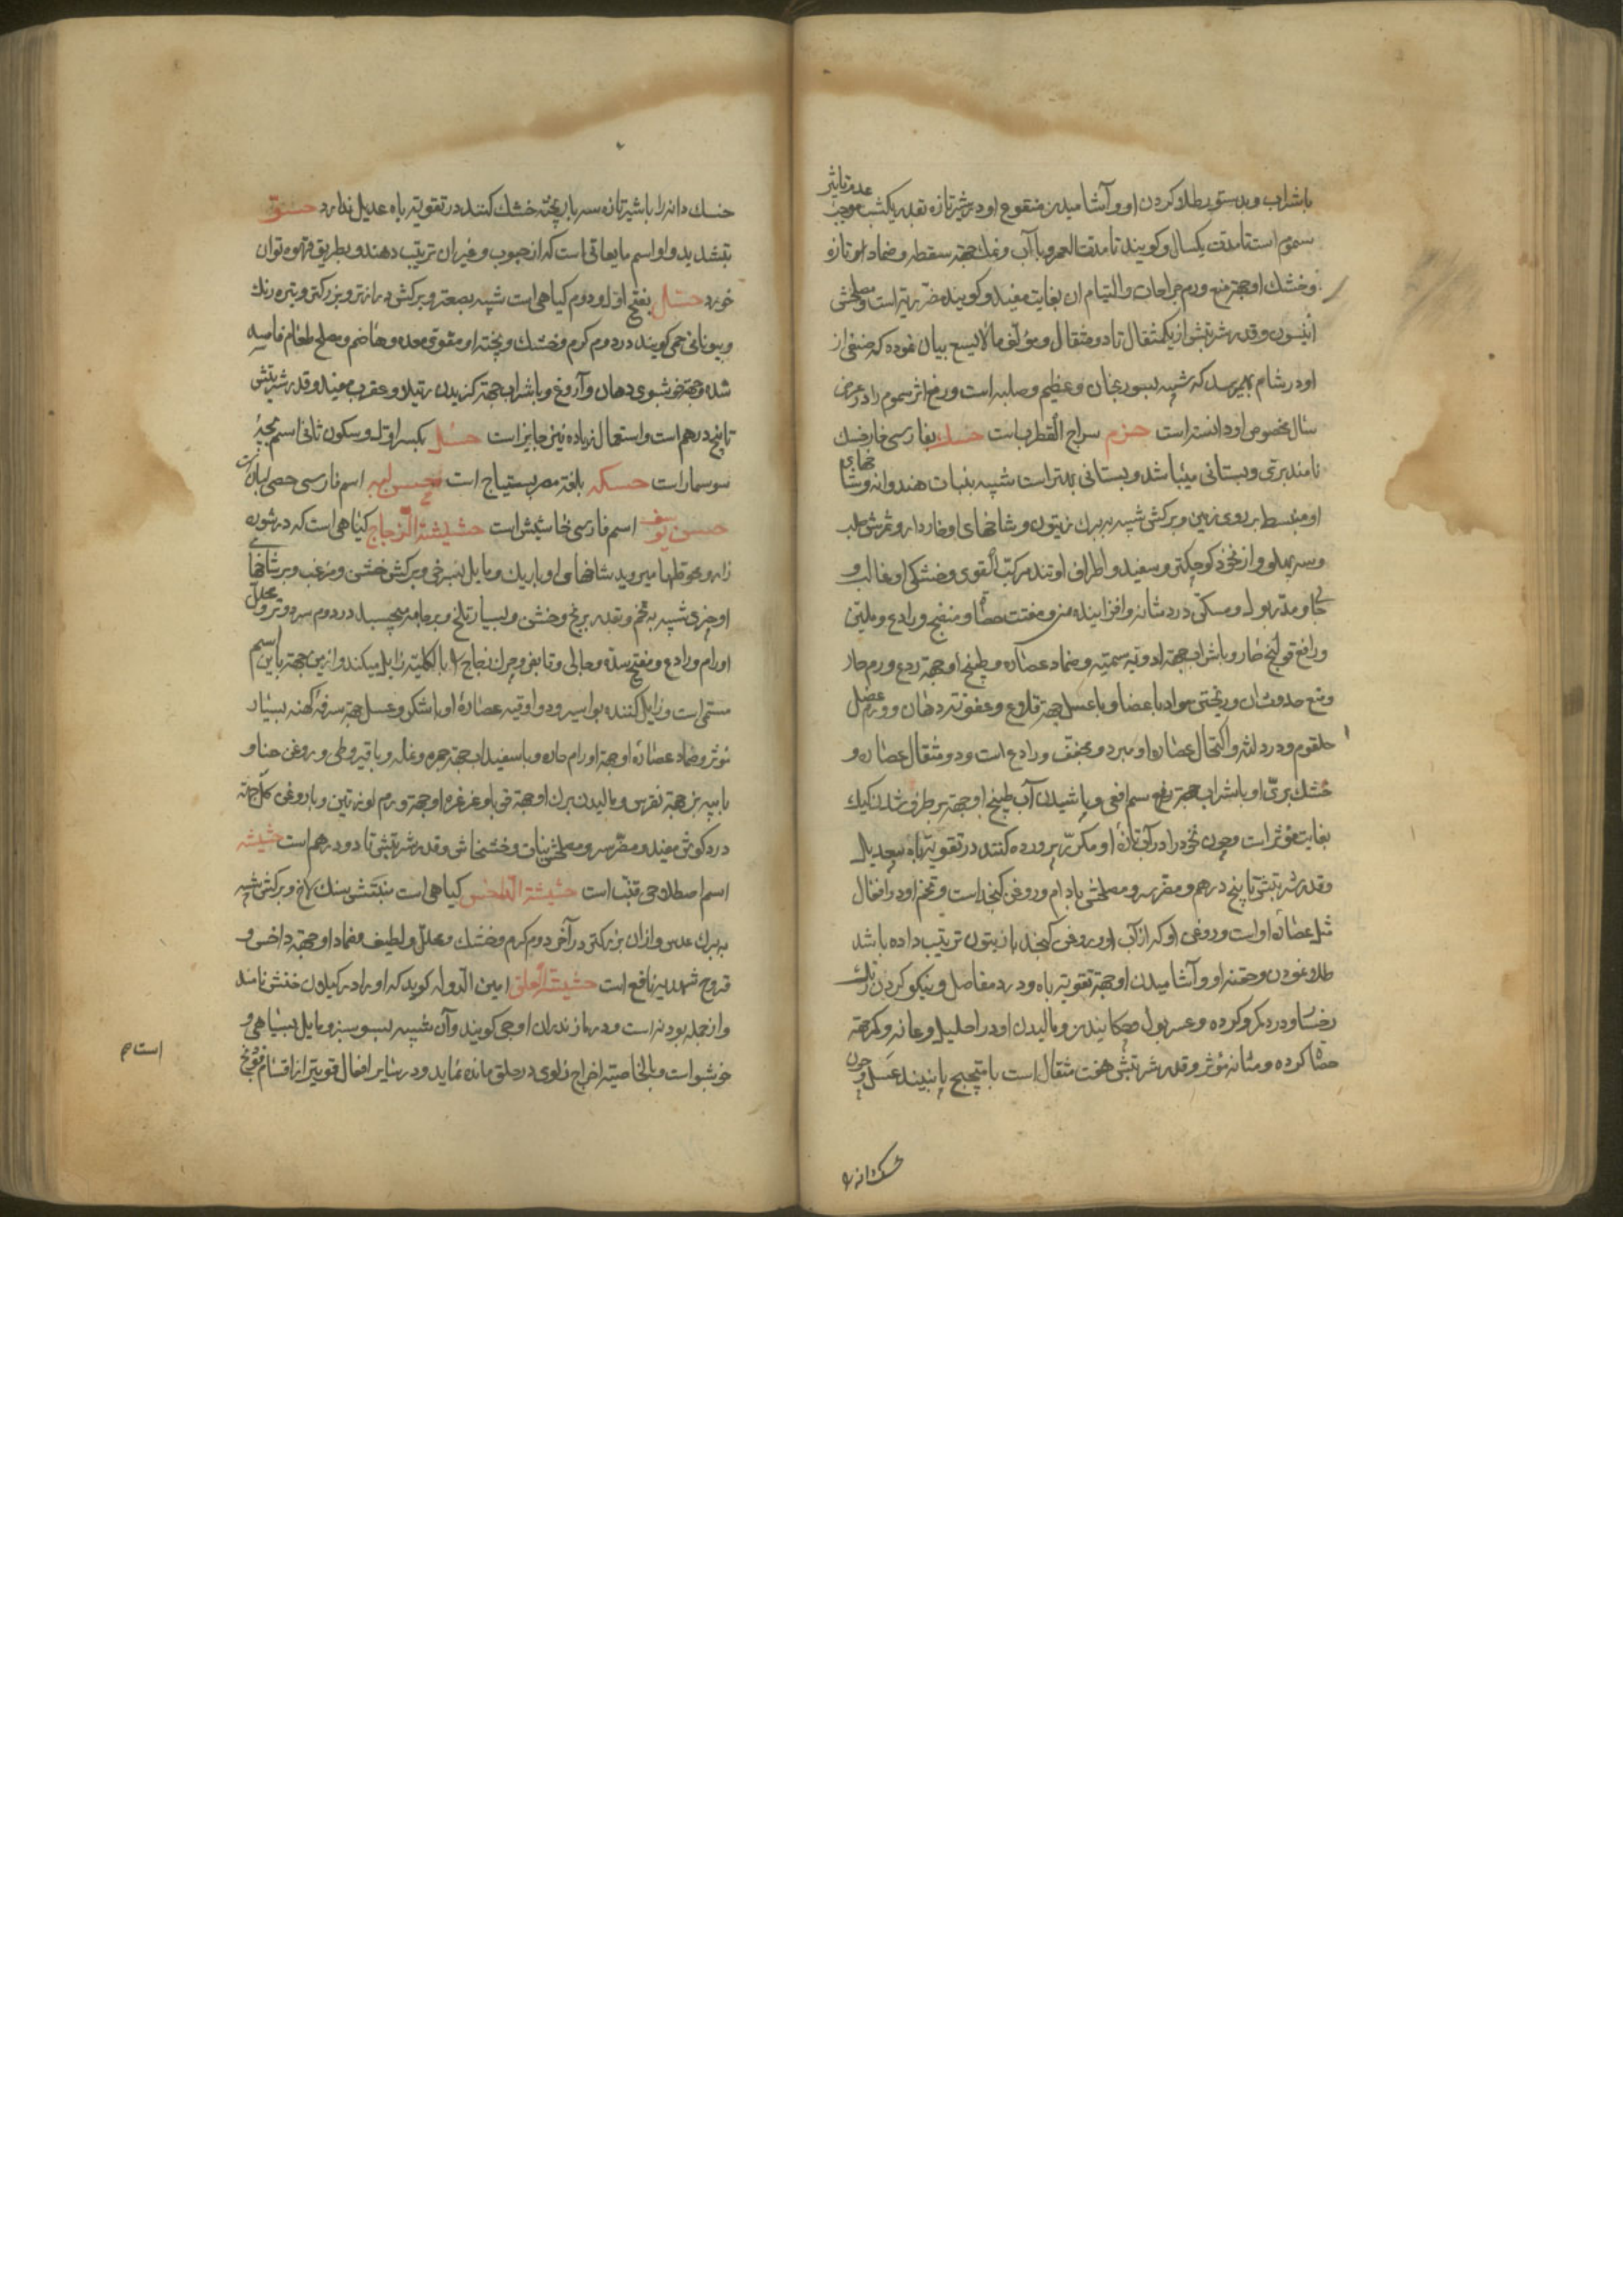 باشراب و بدستور طلا کردن او و آشامیدن منقوع او در شیر تازه بقدر یکشب موجب عدم تاثیر
سموم است تا مدت یکسال و کویند تا مدت العمر و با آب و نمك جهة سقطه و ضماد او تازه
و خشك او جهة منع ورم جراحات و التیام ان بغایت مفید و کویند مضر ریه است و مصلحش
انیسون و قدر شربتش از یکمثقال تا دو مثقال و مؤلف مالایسع بیان نموده که صنفی از
او در شام بهم میرسد که شبیه بسورنجان و عظیم و صلبه است و رفع اثر سموم را در عرض
سال مخصوص او دانسته است حزم سراج القطرب است حسك بفارسی خارخسك
نامند بری و بستانی میباشد و بستانی بهتر است شبیه بنبات هندوانه و شاخهای
او منبسط بر روی زمین و برکش شبیه ببرك زیتون و شاخهای او خاردار و ثمرش صلب
و سه پهلو و از نخود کوچکتر و سفید و اطراف او تند مرکب القوی و خشکی او غالب و
جالی و مدر بول و مسکن درد مثانه و افزاینده منی و مفتت حصاة و منضج و رادع و ملین
و رافع قولنج حار و باشراب جهة ادویه سمیه و ضماد عصاره و طبیخ او جهة ردع ورم حار
و منع حدوث ان و ریختن مواد باعضا و با عسل جهة قلاع و عفونت دهان و ورم عضل
حلقوم و درد لثه و اکتحال عصاره او مبرد و مجفف و رادع است و دو مثقال عصاره و
خشك بری او باشراب جهة رفع سم افعی و پاشیدن آب طبیخ او جهة برطرف شدن کیك
بغایت مؤثر است و چون نخود را در آب تازهٔ او مکرر پرورده کنند در تقویة باه بیعدیل
و قدر شربتش تا پنج درهم و مضر سر و مصلحش بادام و روغن کنجد است و تخم او در افعال
مثل عصاره او است و روغن او که از آب او و روغن کنجد یا زیتون ترتیب داده باشد
طلا نمودن و حقنه او و آشامیدن او جهة تقویة باه و درد مفاصل و نیکو کردن رنك
رخسار و درد کمر و کرده و عسر بول و چکانیدن و مالیدن او در احلیل و عانه و کمر جهة
حصاة کرده و مثانه مؤثر و قدر شربتش هفت مثقال است با میبختج یا نبیذ عسل و چون
خسك دانه را
خسك دانه را با شیر تازه سه بار پخته خشك کنند در تقویة باه عدیل ندارد حسو
بتشدید واو اسم مایعاتی است که از حبوب و غیر ان ترتیب دهند و بطریق قهوه توان
خورد حشال بفتح اول و دوم کیاهی است شبیه بصعتر و برکش درازتر و بزرکتر و تیره رنك
و بیونانی حمی کویند در دوم کرم و خشك و پخته او مقوی معده و هاضم و مصلح طعام فاسد
شده و جهة خوشبوی دهان و آروغ و باشراب جهة کزیدن رتیلا و عقرب مفید و قدر شربتش
تا پنج درهم است و استعمال زیاده نیز جایز است حسل بکسر اول و سکون ثانی اسم بچهٔ
سوسمار است حسکه بلغة مصر بستیاج است حسن لبه اسم فارسی حصی لبان است
حسن یوسف اسم فارسی خاسیش است حشیشة الزجاج کیاهی است که در شوره
زار و حوطها میروید شاخهای او باریك و مایل بسرخی و برکش خشن و مزغب و بر شاخهای
او چیزی شبیه بتخم و بقدر برنج و خشن و بسیار تلخ و بر جامه میچسبد در دوم سرد و تر و محلل
اورام و رادع و مفتح سده و جالی و قابض و چرك زجاج را بالکلیه زایل میکند و ازین جهة باین اسم
مسمی است و زایل کننده بواسیر و دو اوقیه عصارهٔ او با شکر و عسل جهة سرفهٔ کهنه بسیار
مؤثر و ضماد عصارهٔ او جهة اورام حاره و با سفیداب جهة حمره و نمله و با قیروطی و روغن حنا و
با پیه بز جهة نقرس و مالیدن برك او جهة قوبا و غرغره او جهة ورم لوزتین و با روغن کل جهة
درد کوش مفید و مضر سر و مصلحش نبات و خشخاش و قدر شربتش تا دو درهم است حشیشه
اسم اصطلاحی قنب است حشیشة الداحس کیاهی است منبتش سنك لاخ و برکش شبیه
ببرك عدس و از ان بزرکتر در آخر دوم کرم و خشك و محلل و لطیف و ضماد او جهة داحس و
قروح شهدیه نافع است حشیشة العلق امین الدوله کوید که او را در کیلان خنش نامند
و از جمله پودنه است و در مازندران اوجی کویند و آن شبیه بسوسنبر و مایل بسیاهی و
خوشبو است و بالخاصیة اخراج زلوی در حلق مانده نماید و در سایر افعال قویتر از اقسام فوتنج
است